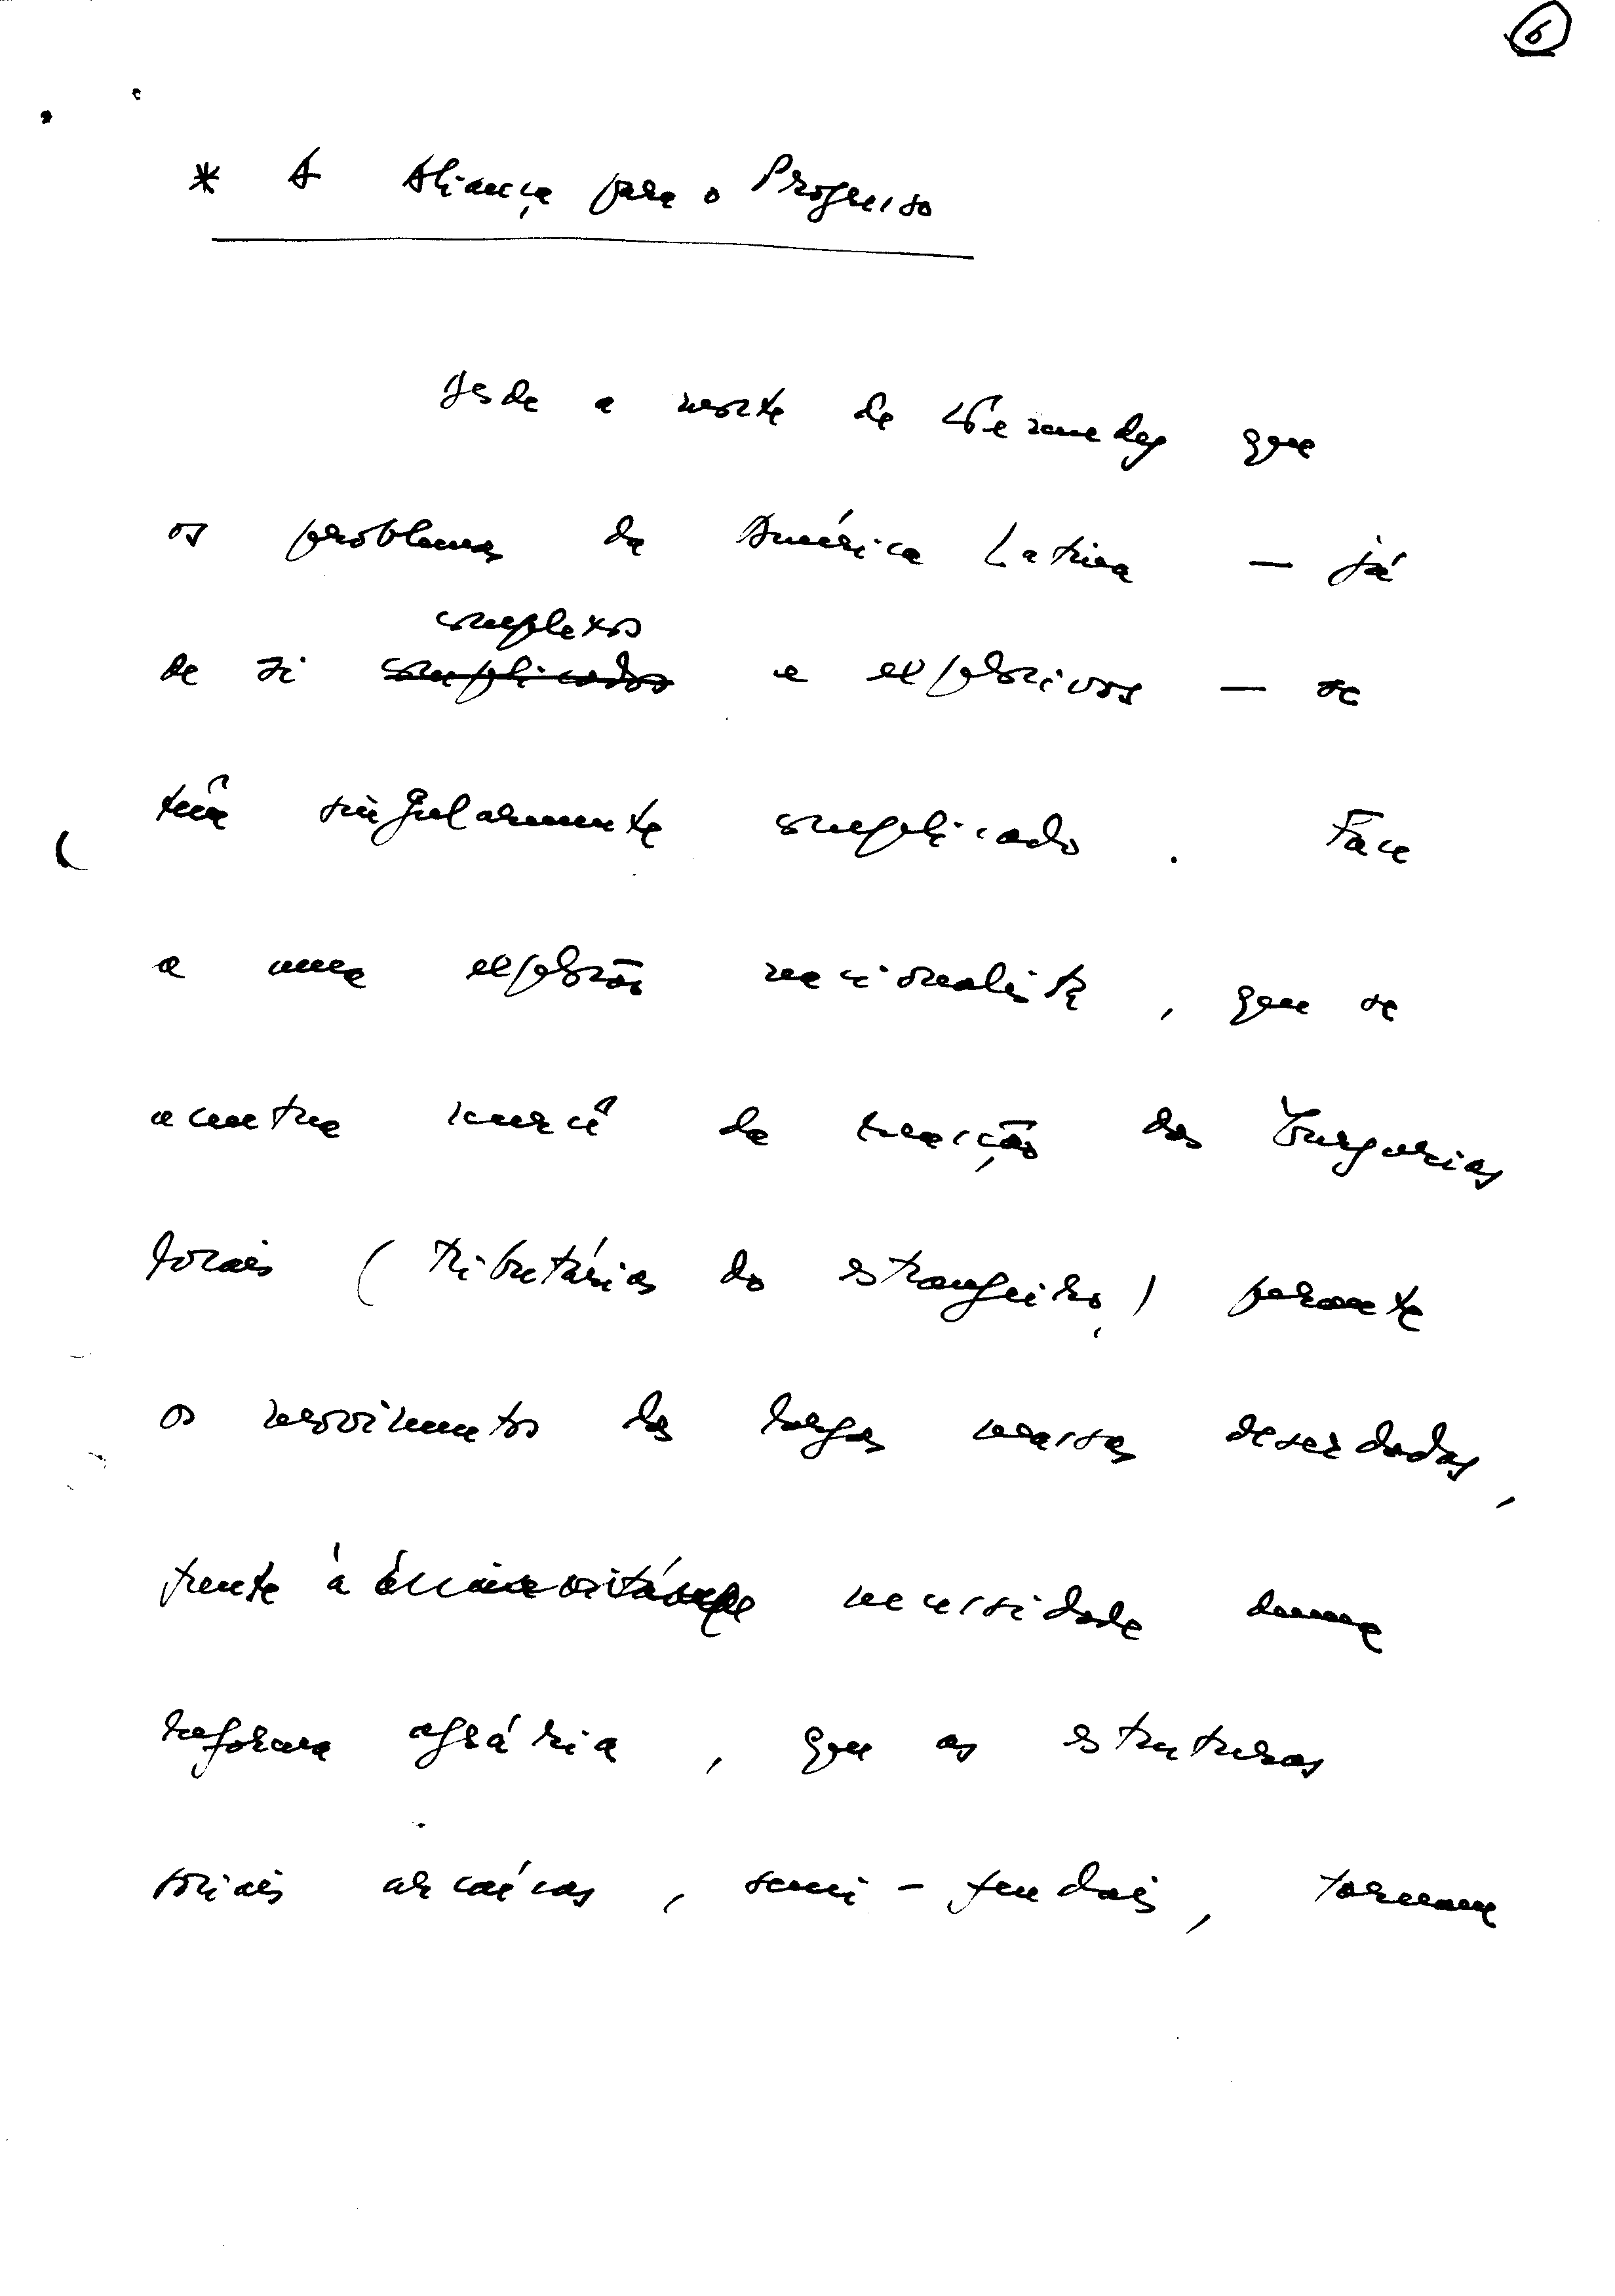 6
* A Aliança para o Progresso
Desde a morte de Kennedy que
os problemas da América Latina — já
complexos
de si complicados e explosivos — se
têm singularmente complicado. Face
a uma explosão nacionalista, que se
acentua mercê da traição das burguesias
locais (tributárias do estrangeiro,) perante
os movimentos das largas massas deserdadas,
frente à necessidade duma
reforma agrária, que as estruturas
sociais arcaicas, semi-feudais, tornam